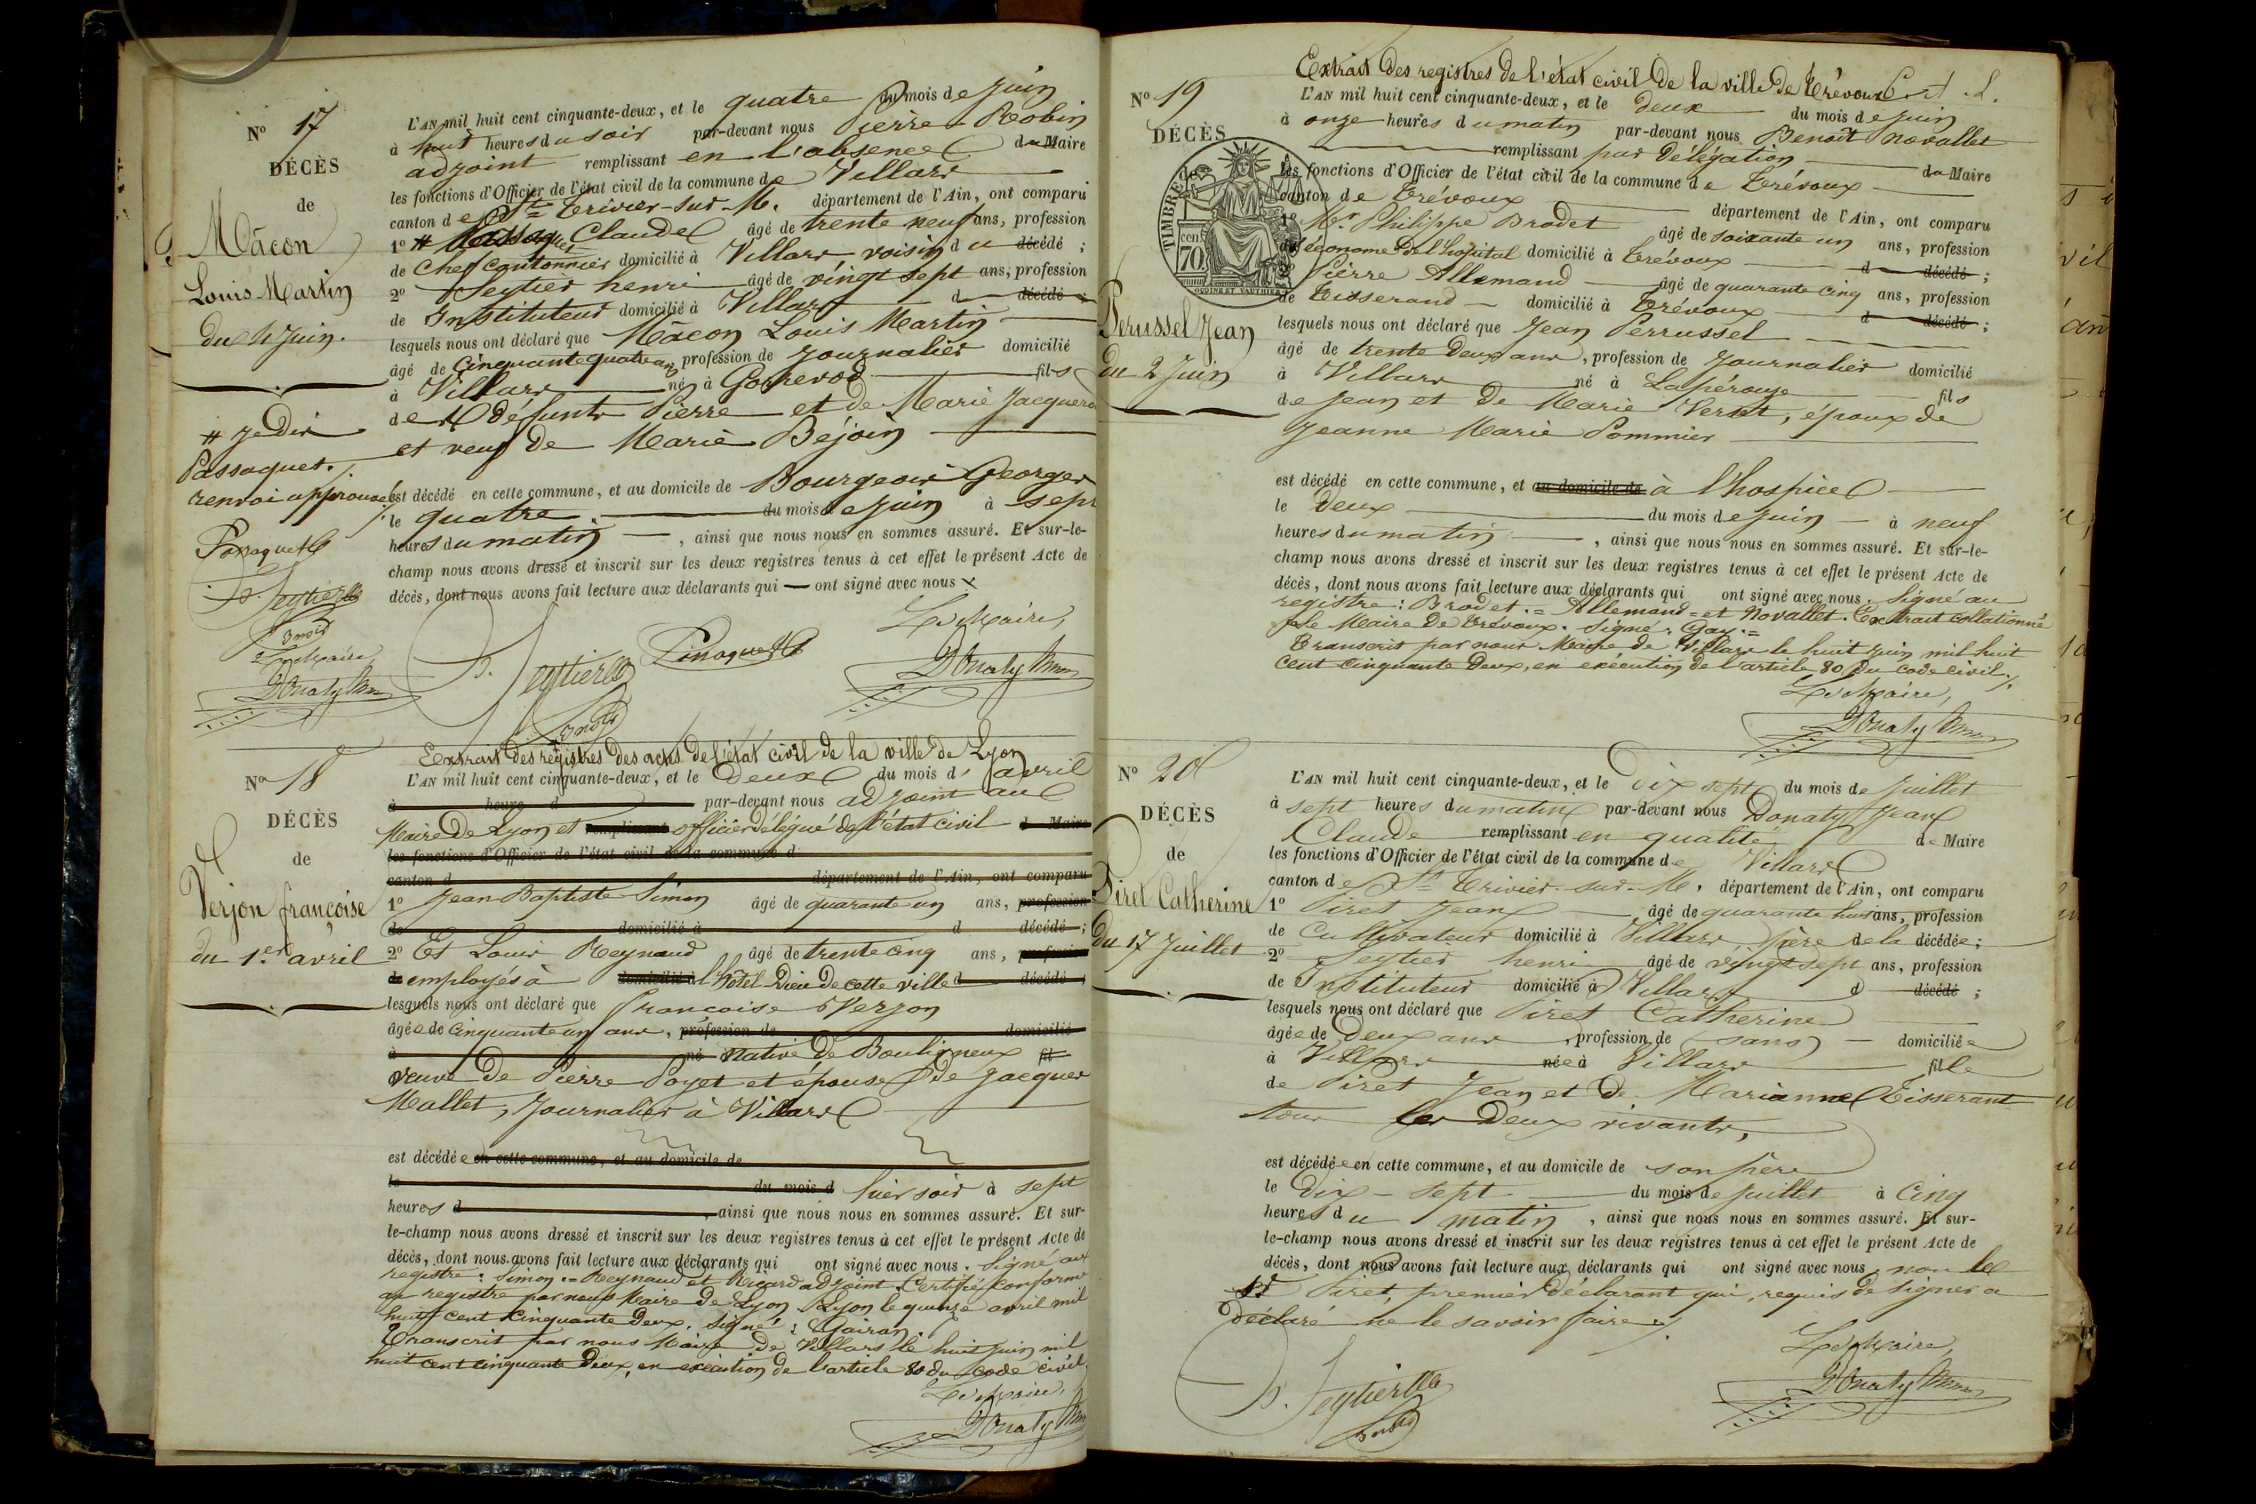 N° 17
DÉCÈS
de
Mâcon
Louis Martin
du 4 Juin.
# je dis
Passaquet.
renvoi approuvé
Passaquet
Seytier
Le Maire
Donaty
L'AN mil huit cent cinquante-deux, et le quatre du mois de Juin
à huit heures du soir par-devant nous Pierre Robin
adjoint remplissant en l'absence du Maire
les fonctions d'Officier de l'état civil de la commune de Villars
canton de St Trivier-sur-M. département de l'Ain, ont comparu
1° # Claude âgé de trente neuf ans, profession
de Chef cantonnier domicilié à Villars voisin du décédé ;
2° Seytier henri âgé de vingt sept ans, profession
de Instituteur domicilié à Villars d décédé ;
lesquels nous ont déclaré que Mâcon Louis Martin
âgé de Cinquante quatre ans profession de Journalier domicilié
à Villars né à Gorrevod fils
de défunts Pierre et de Marie Jacquer
et veuf de Marie Béjoin
est décédé en cette commune, et au domicile de Bourgeois Georges
le quatre du mois de Juin à sept
heures du matin, ainsi que nous nous en sommes assuré. Et sur-le-
champ nous avons dressé et inscrit sur les deux registres tenus à cet effet le présent Acte de
décès, dont nous avons fait lecture aux déclarants qui ont signé avec nous
Le Maire,
Seytier Passaquet Donaty
N° 18
DÉCÈS
de
Verjon françoise
du 1er avril
Extrait des registres des actes de l'état civil de la ville de Lyon
L'AN mil huit cent cinquante-deux, et le Deux du mois d'avril
à heure d par-devant nous adjoint au
Maire de Lyon et remplissant officier délégué de l'état civil d Maire
les fonctions d'Officier de l'état civil de la commune d
canton d département de l'Ain, ont comparu
1° Jean Baptiste Simon âgé de quarante un ans, profession
de domicilié à d décédé ;
2° Et Louis Reynaud âgé de trente cinq ans, profession
de employés à domicilié à l'hôtel Dieu de cette ville d décédé ;
lesquels nous ont déclaré que françoise Verjon
âgée de Cinquante un ans, profession de domicilié
à né native de Bouligneux fil
veuve de Pierre Poyet et épouse de Jacques
Mallet, Journalier à Villars
est décédée en cette commune, et au domicile de
le du mois d hier soir à sept
heures d , ainsi que nous nous en sommes assuré. Et sur-
le-champ nous avons dressé et inscrit sur les deux registres tenus à cet effet le présent Acte de
décès, dont nous avons fait lecture aux déclarants qui ont signé avec nous. Signé au
registre : Simon = Reynaud et adjoint. Certifié conforme
au registre par nous Maire de Lyon. Lyon le quinze avril mil
huit cent cinquante deux. Signé :
Transcrit par nous Maire de Villars le huit Juin mil
huit cent cinquante deux, en exécution de l'article 80 du code civil.
Le Maire,
Donaty
Extrait des registres de l'état civil de la ville de Trévoux
N° 19
DÉCÈS
TIMBRE
cen. 70
Perussel Jean
du 2 Juin
L'AN mil huit cent cinquante-deux, et le deux du mois de Juin
à onze heures du matin par-devant nous Benoît Novallet
remplissant par délégation du Maire
les fonctions d'Officier de l'état civil de la commune de Trévoux
canton de Trévoux département de l'Ain, ont comparu
1° Mr. Philippe Brodet âgé de soixante un ans, profession
économe de l'hopital domicilié à Trévoux d décédé ;
2° Pierre Allemand âgé de quarante cinq ans, profession
de Tisserand domicilié à Trévoux d décédé ;
lesquels nous ont déclaré que Jean Perrussel
âgé de trente deux ans, profession de Journalier domicilié
à Villars né à Lapérouze fils
de Jean et de Marie Vernt, époux de
Jeanne Marie Pommier
est décédé en cette commune, et au domicile de à l'hospice
le deux du mois de Juin à neuf
heures du matin, ainsi que nous nous en sommes assuré. Et sur-le-
champ nous avons dressé et inscrit sur les deux registres tenus à cet effet le présent Acte de
décès, dont nous avons fait lecture aux déclarants qui ont signé avec nous. Signé au
registre : Brodet = Allemand = et Novallet. Extrait collationné
Le Maire de Trévoux. Signé : Gay =
Transcrit par nous Maire de Villars le huit Juin mil huit
cent cinquante deux, en exécution de l'article 80 du code civil.
Le Maire,
Donaty
N° 20
DÉCÈS
de
Piret Catherine
du 17 Juillet
L'AN mil huit cent cinquante-deux, et le dix sept du mois de Juillet
à sept heures du matin par-devant nous Donaty Jean
Claude remplissant en qualité de Maire
les fonctions d'Officier de l'état civil de la commune de Villars
canton de St Trivier-sur-M. département de l'Ain, ont comparu
1° Piret Jean âgé de quarante huit ans, profession
de Cultivateur domicilié à Villars père de la décédée ;
2° Seytier henri âgé de vingt sept ans, profession
de Instituteur domicilié à Villars d décédé ;
lesquels nous ont déclaré que Piret Catherine
âgée de Deux ans profession de sans domiciliée
à Villars née à Villars fille
de Piret Jean et de Marianne Tisserant
tous les Deux vivants,
est décédée en cette commune, et au domicile de son père
le Dix-sept du mois de Juillet à Cinq
heures du matin, ainsi que nous nous en sommes assuré. Et sur-
le-champ nous avons dressé et inscrit sur les deux registres tenus à cet effet le présent Acte de
décès, dont nous avons fait lecture aux déclarants qui ont signé avec nous, non le
Sr Piret, premier déclarant qui, requis de signer a
déclaré ne le savoir faire
Le Maire,
Seytier Donaty